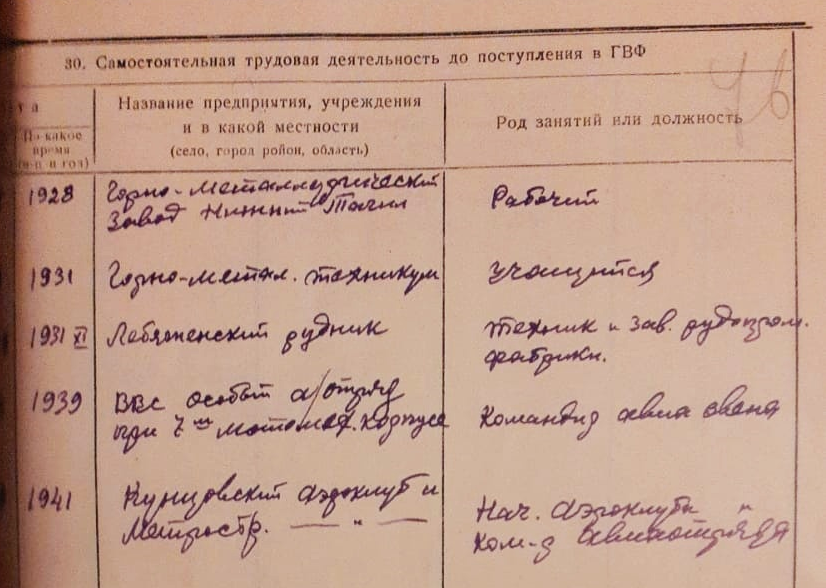 30. Самостоятельная трудовая деятельность до поступления в ГВФ
та
По какое
время
(м-ц и год)
Название предприятия, учреждения
и в какой местности
(село, город район, область)
Род занятий или должность
1928
Горно-металлургический
завод Нижний Тагил
Рабочий
1931
Горно-метал. техникум
Учащийся
1931 XI
Лебяженский рудник
Техник и зав. рудопром.
фабрики.
1939
ВВС особый а/отряд
при 7му мотомех. корпусе
Командир авиа звена
1941
Кунцовский аэроклуб и
Метростр. — " —
Нач. Аэроклуба и
Ком-р авиаотряда